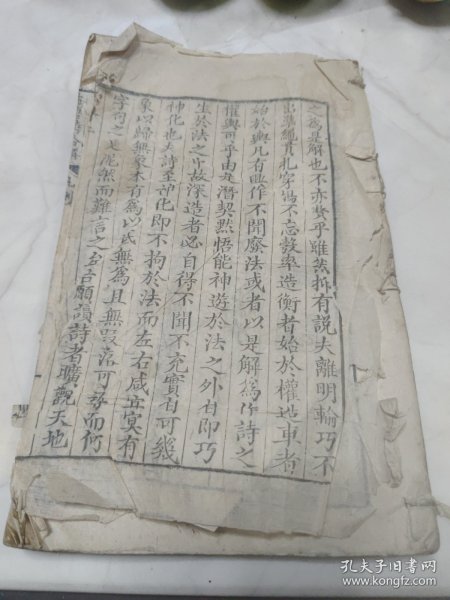 之後是解也不亦贅乎雖然抑有說夫離明輪巧不
出準繩貫札穿楊不忘彀率造衡者始於權造車者
始於輿凡有興作不聞廢法或者以是解為作詩之
權輿可乎由是潛契默悟能神遊於法之外者即巧
生於法之中故深造者必自得不聞不充實自可幾
神化也夫詩至神化即不拘於法而左右咸宜冥有
象以歸無象本有為以民無為且無段落可尋而何
字句之足泥然而難言之矣吾願讀詩者曠觀天地
孔夫子旧书网
www.kongfz.com